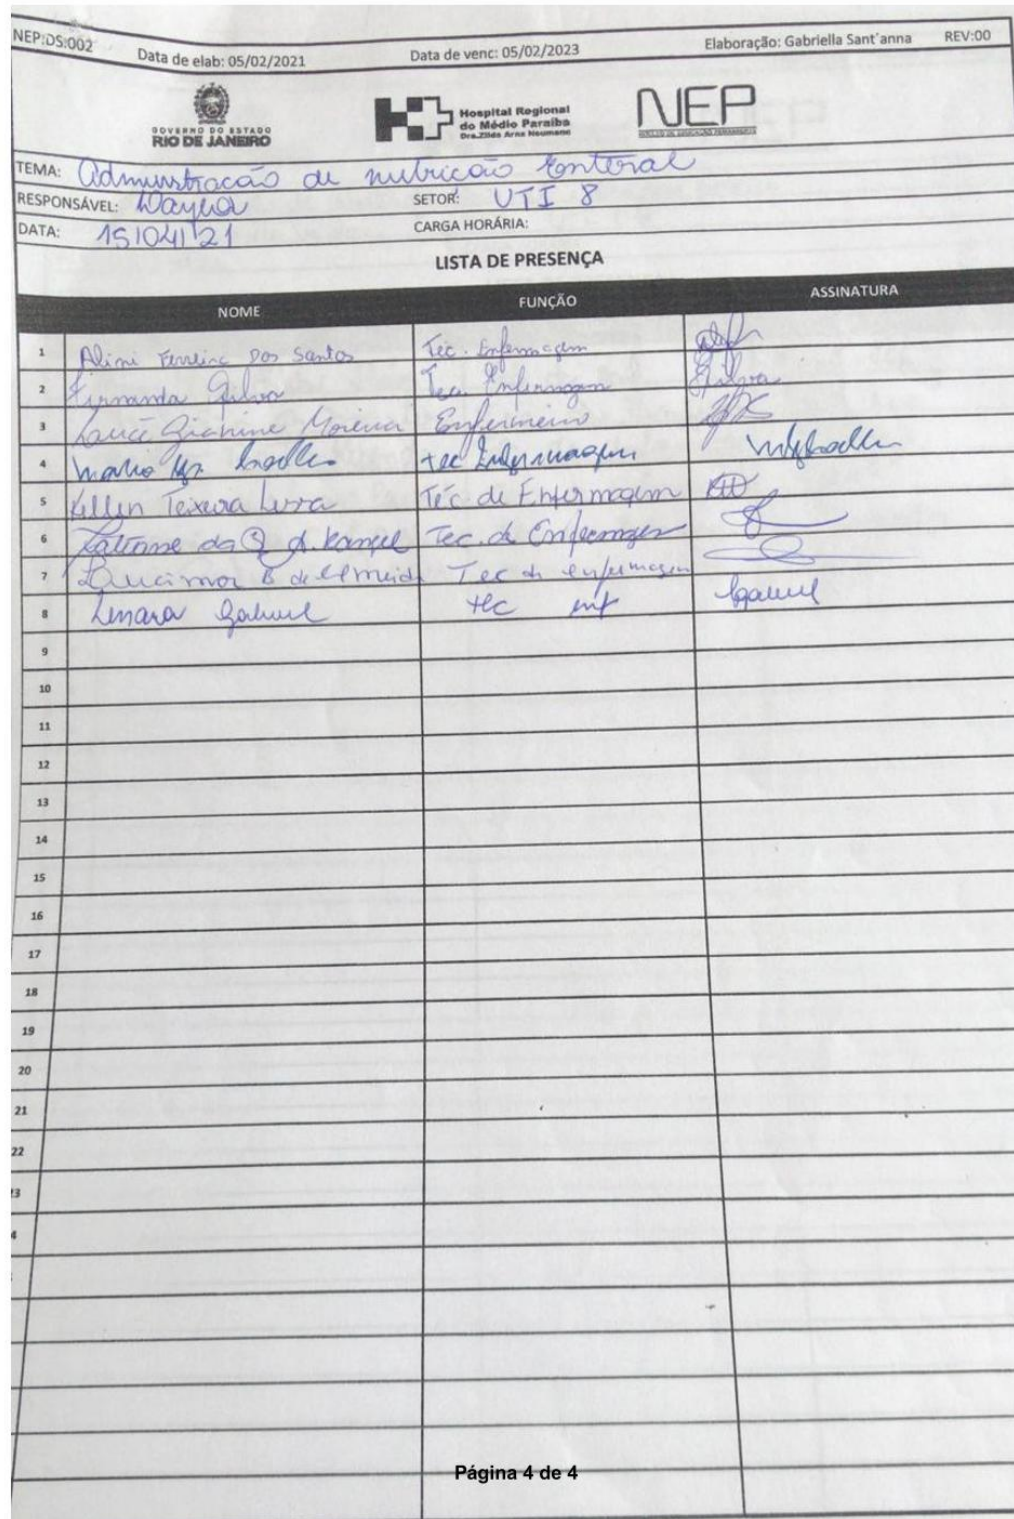 NEP:DS:002 Data de elab: 05/02/2021 Data de venc: 05/02/2023 Elaboração: Gabriella Sant´anna REV:00
GOVERNO DO ESTADO
RIO DE JANEIRO
Hospital Regional
do Médio Paraíba
Dra.Zilda Arns Neumann
NEP
TEMA: Administração de nutrição Enteral
RESPONSÁVEL: SETOR: UTI 8
DATA: 15/04/21 CARGA HORÁRIA:
LISTA DE PRESENÇA
NOME FUNÇÃO ASSINATURA
1 Ferreira Dos Santos Tec. Enfermagem
2 Fernanda Silva Tec. Enfermagem Silva
3 Moreira Enfermeiro
4 tec Enfermagem
5 Kellen Teixeira Téc de Enfermagem
6 da Tec. de Enfermagem
7 Lucimar B de Almeida Tec de enfermagem
8 Gabriel tec enf Gabriel
9
10
11
12
13
14
15
16
17
18
19
20
21
22
3
4
Página 4 de 4